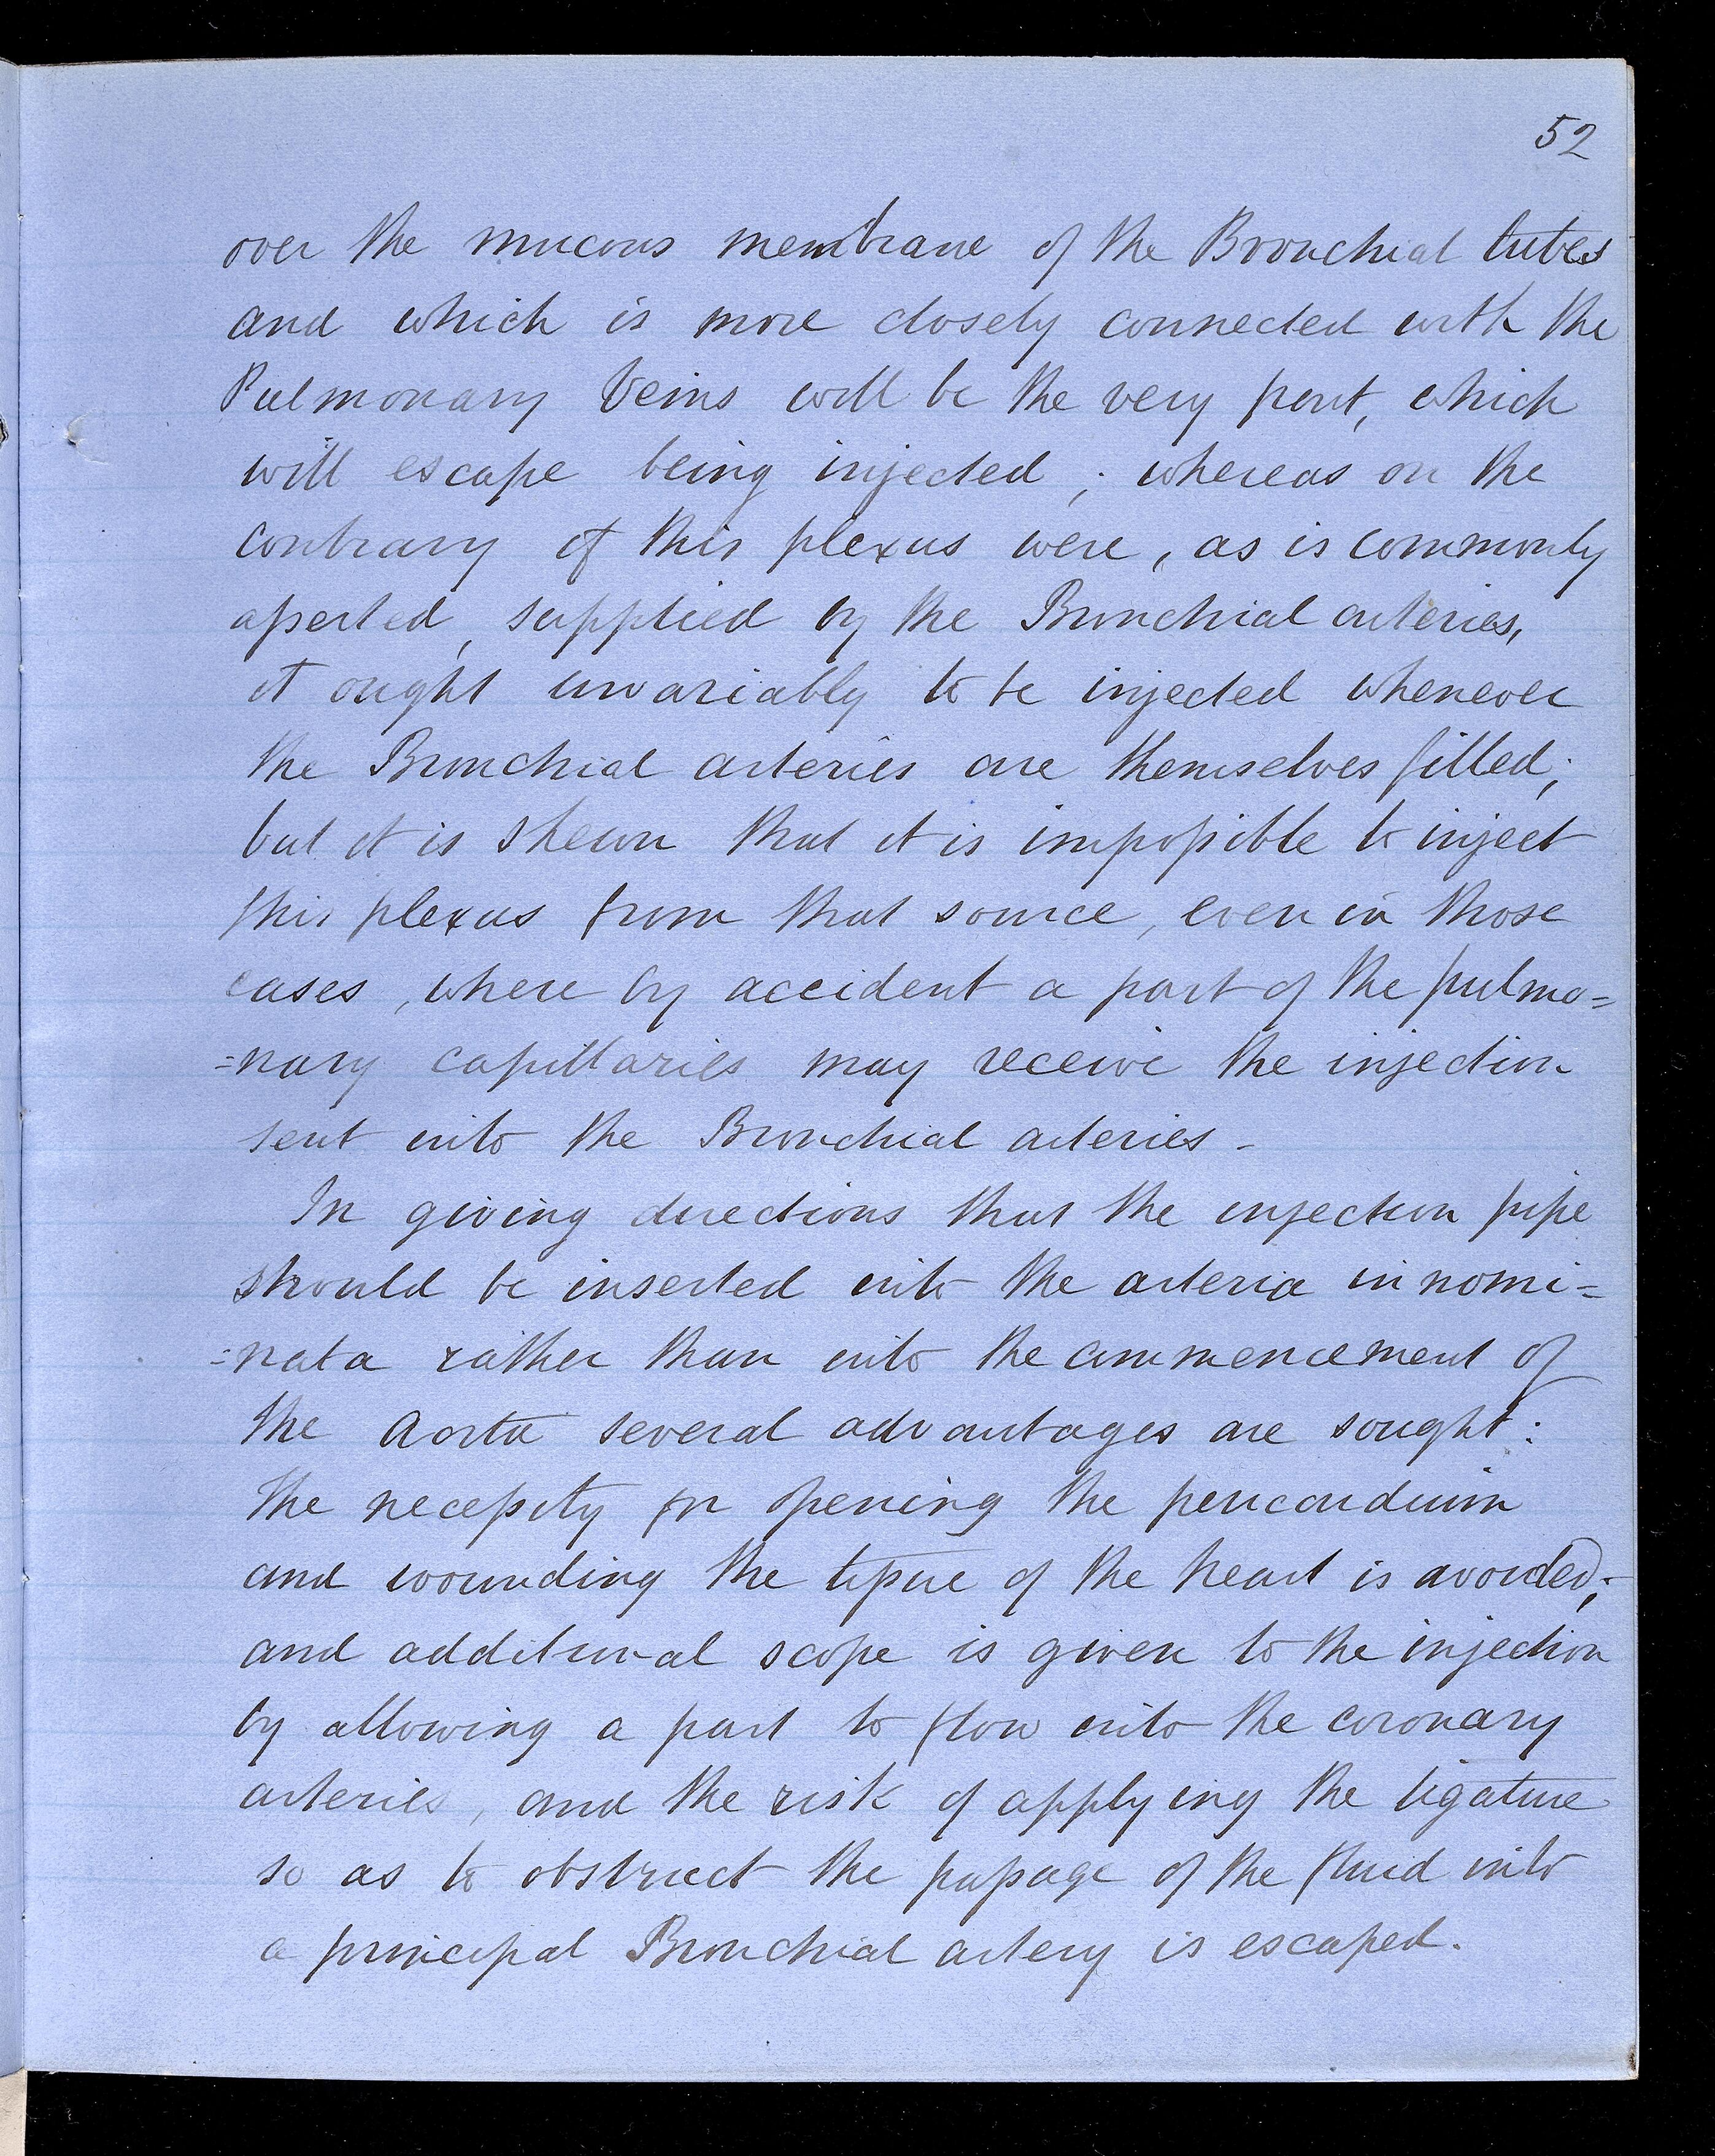 52
over the mucous membrane of the Bronchial tubes
and which is more closely connected with the
Pulmonary Veins will be the very part, which
will escape being injected; whereas on the
contrary if this plexus were, as is commonly
asserted, supplied by the Bronchial arteries,
it ought invariably to be injected whenever
the Bronchial arteries are themselves filled;
but it is shewn that it is impossible to inject
this plexus from that source, even in those
cases, where by accident a part of the pulmo=
=nary capillaries may receive the injection
sent into the Bronchial arteries -
In giving directions that the injection pipe
should be inserted into the arteria innomi=
=nata rather than into the commencement of
the Aorta several advantages are sought:
the necessity for opening the pericardium
and wounding the tissue of the heart is avoided;
and additional scope is given to the injection
by allowing a part to flow into the coronary
arteries, and the risk of applying the ligature
so as to obstruct the passage of the fluid into
a principal Bronchial artery is escaped.